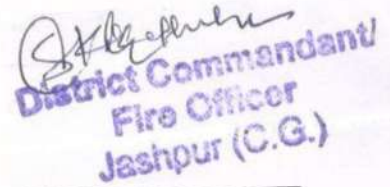 District Commandant/
Fire Officer
Jashpur (C.G.)